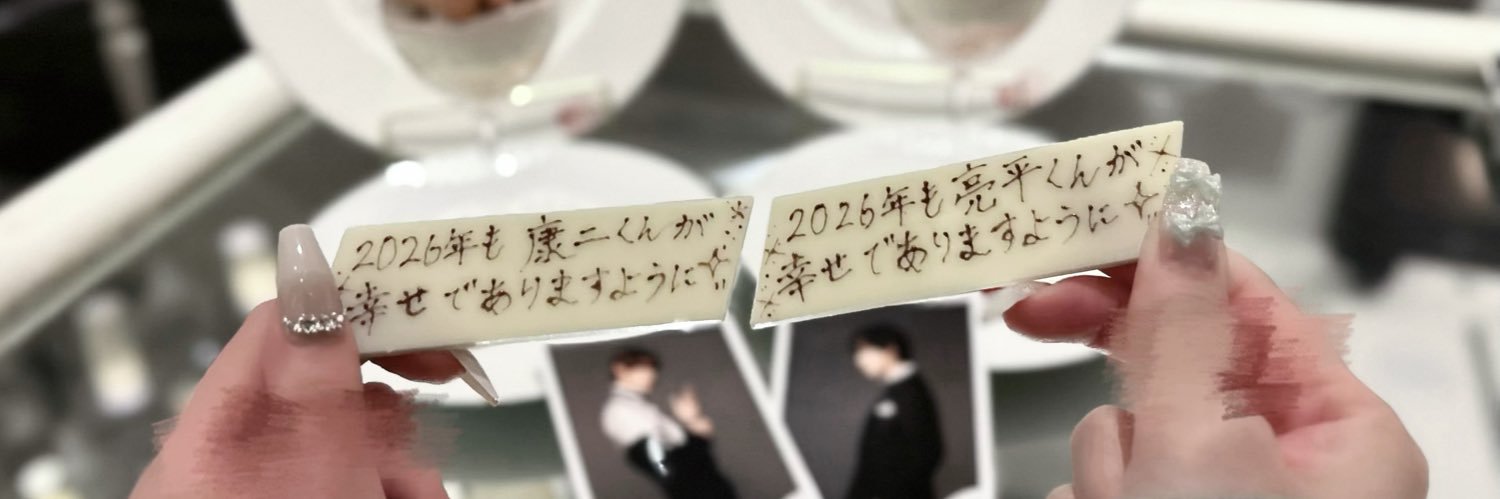 2026年も康二くんが
幸せでありますように
2026年も亮平くんが
幸せでありますように